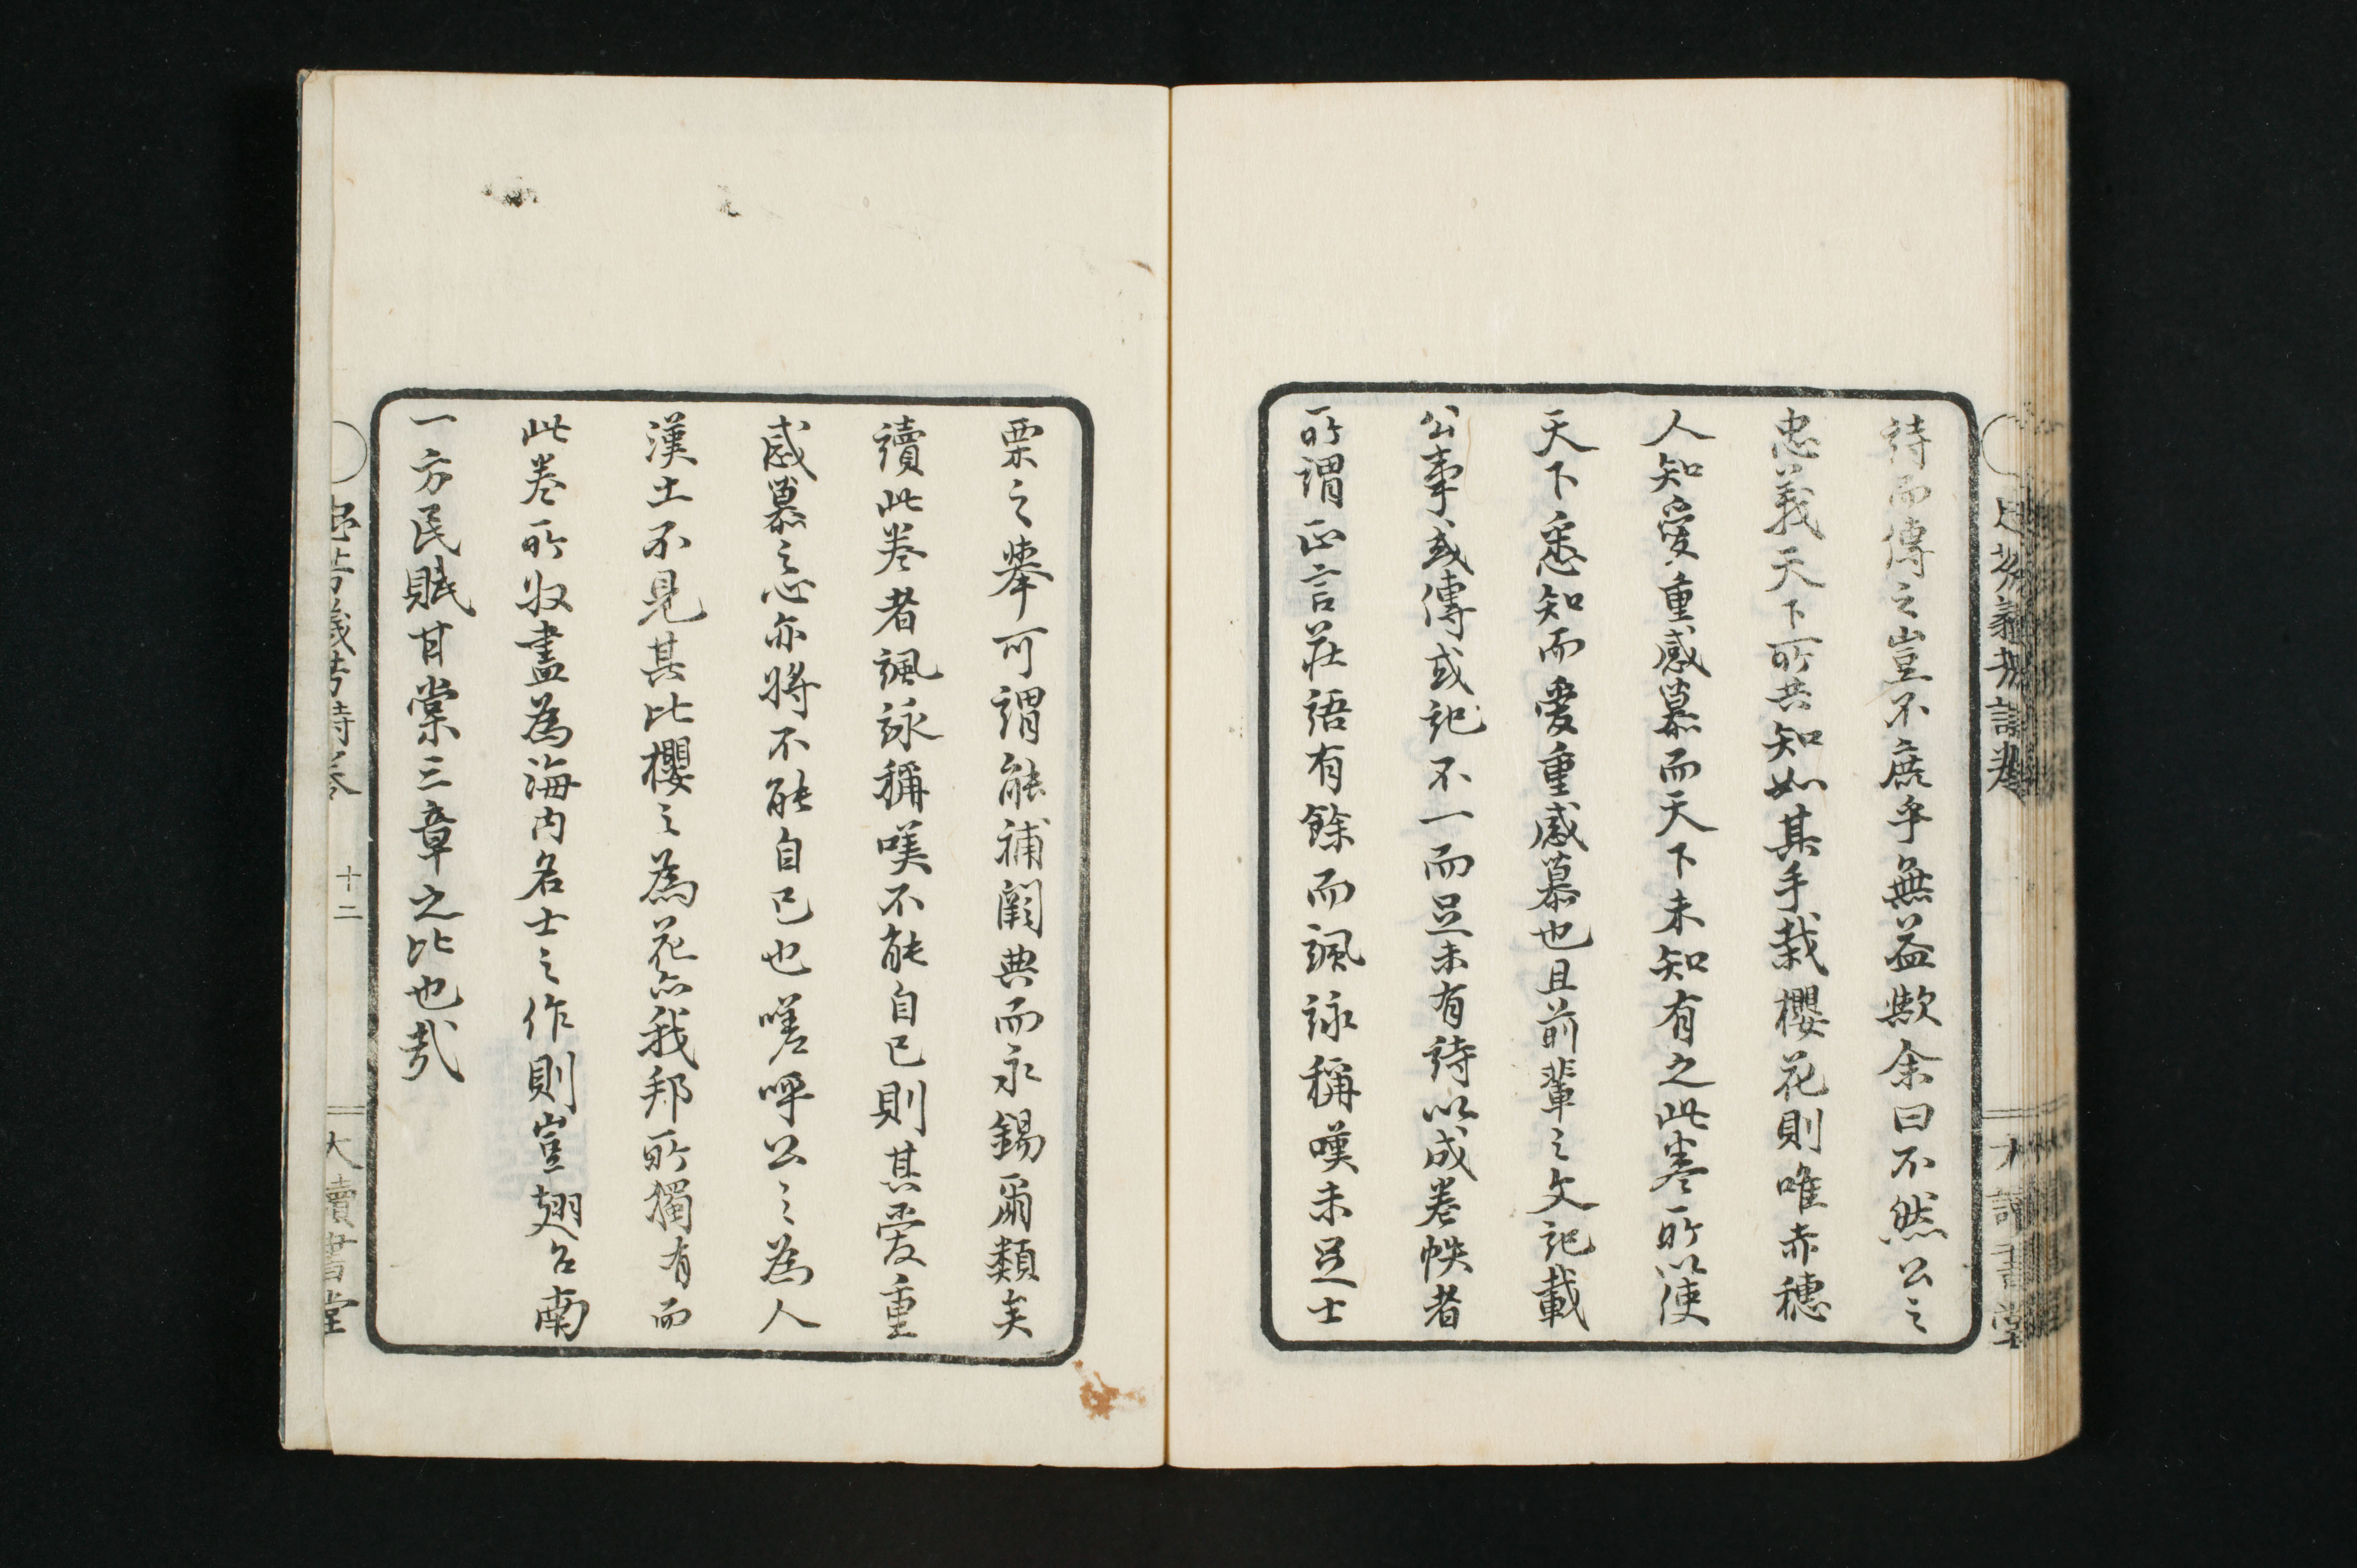 詩而傳之豈不庶乎無益歟余曰不然公之
忠義天下所共知如其手栽櫻花則唯赤穗
人知愛重感慕而天下未知有之此卷所以使
天下悉知而愛重感慕也且前輩之文記載
公事或傳或記不一而足未有詩以成卷帙者
所謂正言莊語有餘而諷詠稱嘆未足士
栗之舉可謂能補闕典而永錫爾類矣
讀此卷者諷詠稱嘆不能自已則其愛重
感慕之心亦將不能自已也嗟呼公之為人
漢土不見其比櫻之為花亦我邦所獨有而
此卷所收盡為海内名士之作則豈翅召南
一方民賦甘棠三章之比也哉
忠芬義芳詩卷
十二
大讀書堂